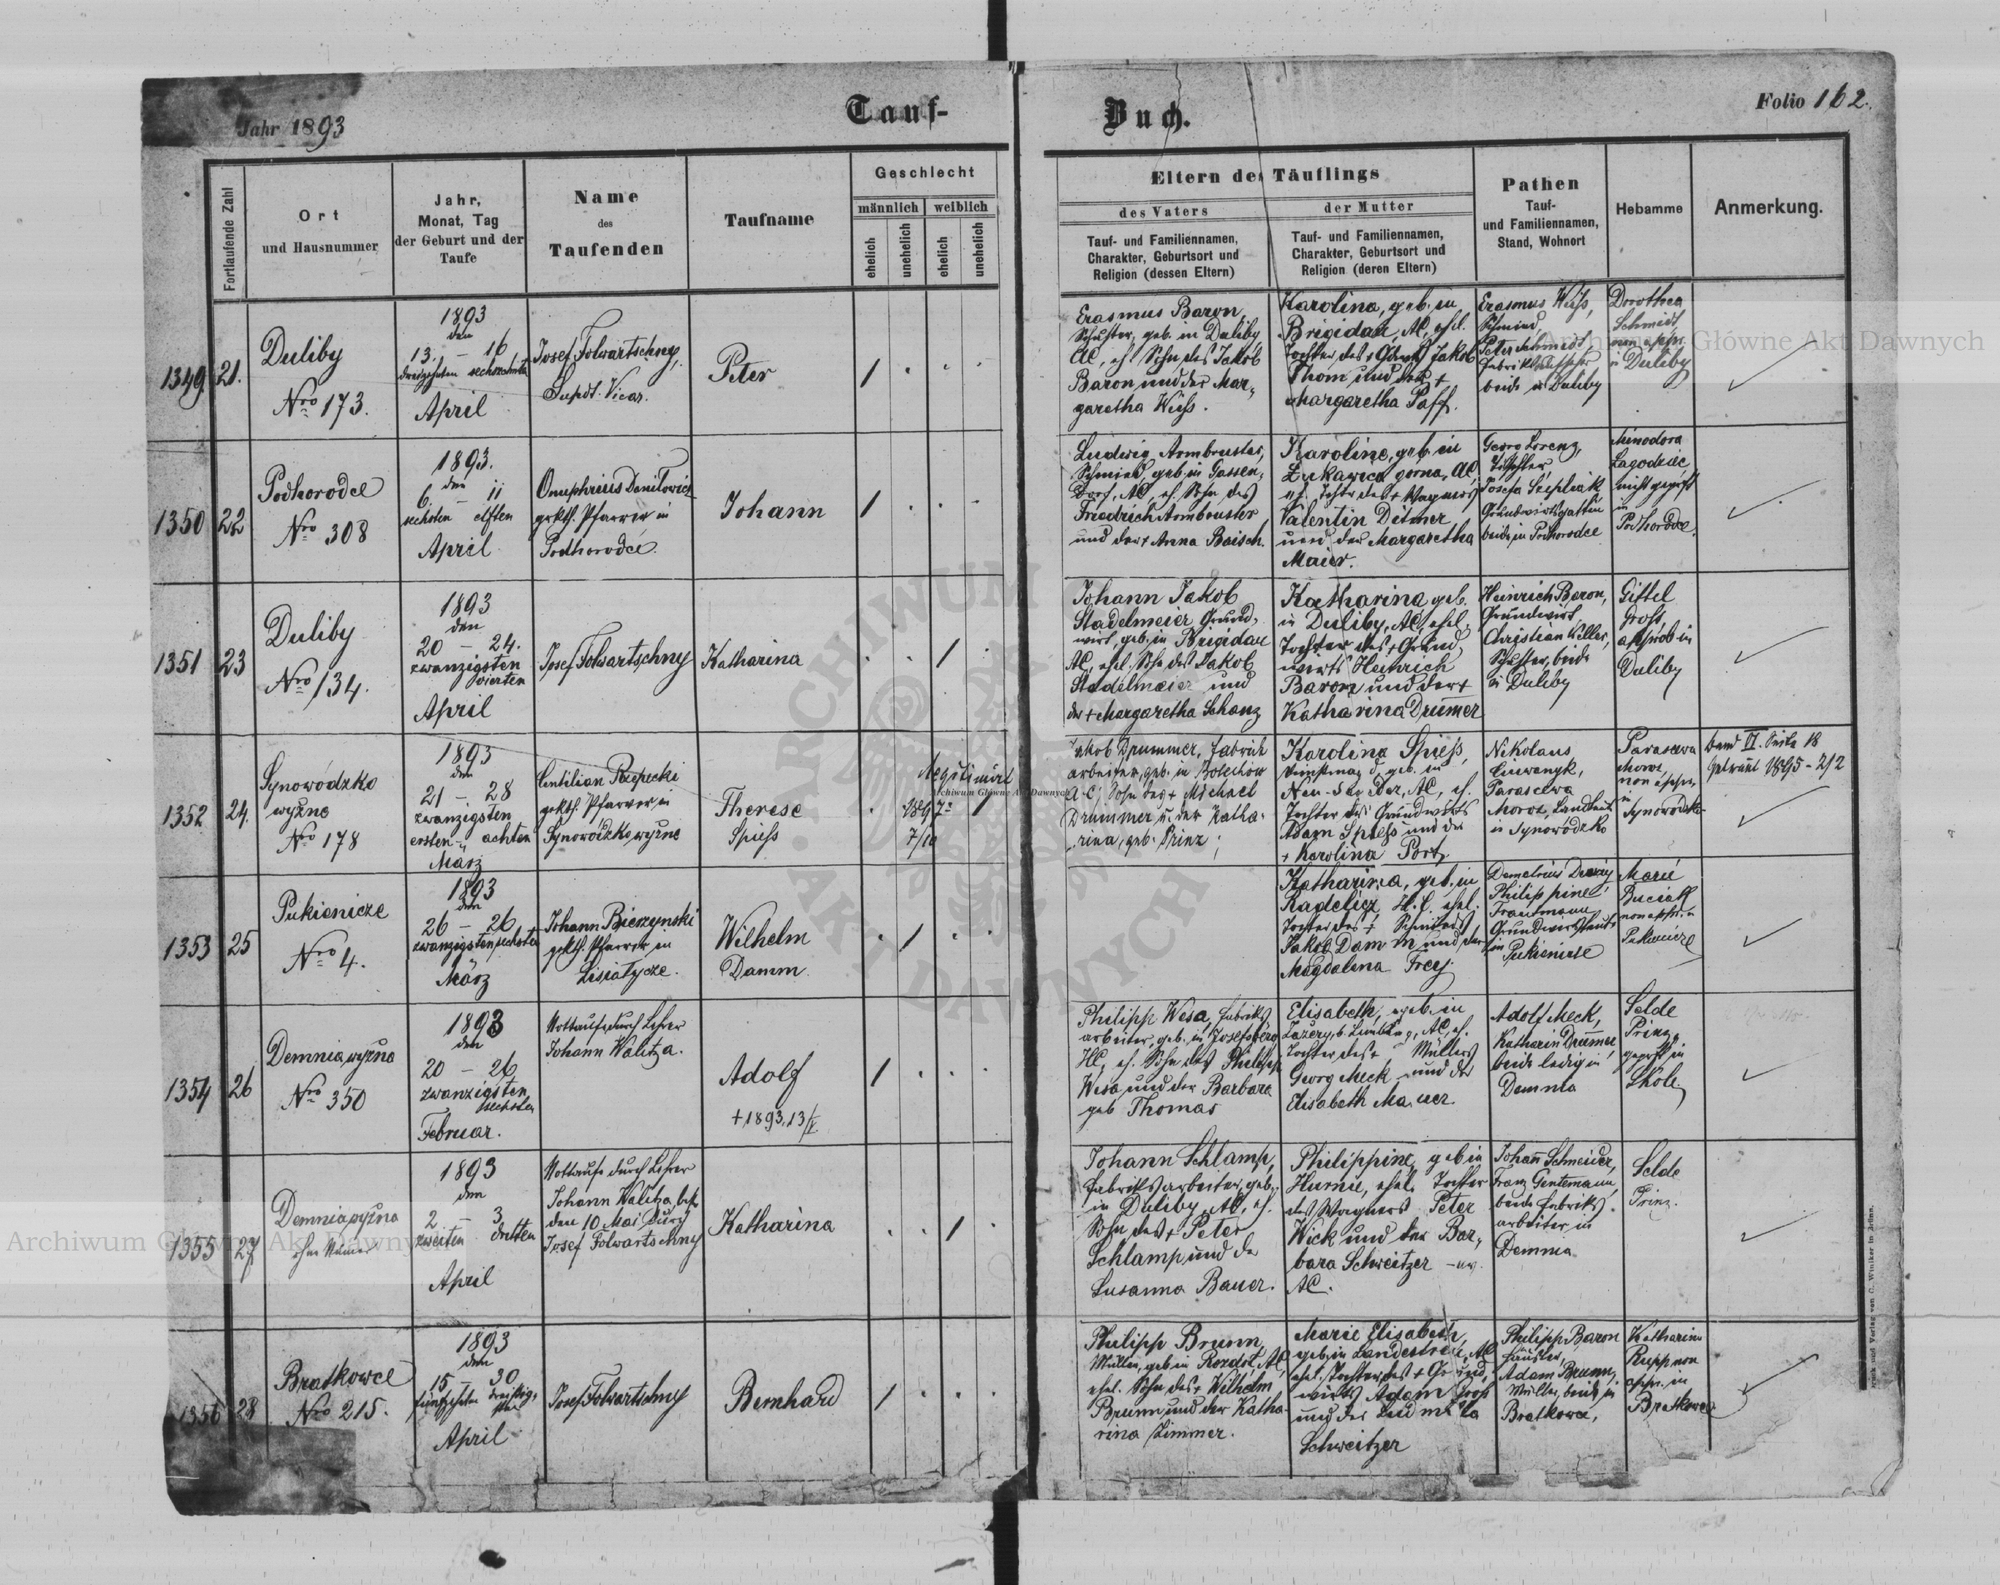 Jahr 1893
Tauf-
Buch.
Folio 162.
Fortlaufende Zahl
Ort
und Hausnummer
Jahr,
Monat, Tag
der Geburt und der
Taufe
Name
des
Taufenden
Taufname
Geschlecht
männlich
weiblich
ehelich
unehelich
ehelich
unehelich
Eltern des Täuflings
des Vaters
Tauf- und Familiennamen,
Charakter, Geburtsort und
Religion (dessen Eltern)
der Mutter
Tauf- und Familiennamen,
Charakter, Geburtsort und
Religion (deren Eltern)
Pathen
Tauf-
und Familiennamen,
Stand, Wohnort
Hebamme
Anmerkung.
1349
21.
Duliby
Nro 173.
1893
den
13. – 16
dreizehnten sechzehnten
April
Josef Folwartschny,
Supdt. Vicar.
Peter
/
Erasmus Baron,
Schuster, geb. in Duliby,
AC, eh. Sohn des Jakob
Baron und der Mar-
garetha Wiess.
Karolina, geb. in
Brigidau, AC, ehel.
Tochter des + Jakob
Thom und der +
Margaretha Paff.
Erasmus Wiess,
Schmied,
Peter Schmidt
beide in Duliby
Dorothea
Schmidt,
non appr.
in Duliby
1350
22
Podhorodce
Nro 308
1893.
den
6. – 11
sechsten elften
April
Onuphrius Danilowicz
grkth. Pfarrer in
Podhorodce
Johann
/
Ludwig Armbruster,
Schmied, geb. in Gassen-
dorf, AC, eh. Sohn des
Friedrich Armbruster
und der + Anna Baisch.
Karoline, geb. in
Łukawica gorna, AC,
eh. Tochter des + Wagners
Valentin Ditmer
und der Margaretha
Maier.
Georg Lorenz,
Josefa Szepliak
Grundwirtsgattin
beide in Podhorodce
Minodora
Lagodziec,
nicht geprüft
in
Podhorodce.
1351
23
Duliby
Nro 134.
1893
den
20 – 24.
zwanzigsten
vierten
April
Josef Folwartschny
Katharina
/
Johann Jakob
Stadelmeier, Grund-
wirt, geb. in Brigidau
AC, ehel. Sohn des Jakob
Stadelmeier und
der + Margaretha Schanz
Katharina geb.
in Duliby, AC, ehel.
Tochter des + Grund-
wirts Heinrich
Baron und der +
Katharina Drumer
Heinrich Baron,
Grundwirt,
Christian Willer,
Schuster, beide
in Duliby
Gittel
Gross,
approb in
Duliby
1352
24.
Synowódzko
wyżne
Nro 178
1893
den
21 – 28
zwanzigsten
ersten – achten
März
Rzepecki
grkth. Pfarrer in
Synowódzko wyżne
Therese
Spiess
Legitimirt
1897
7/10
/
Jakob Drummer, Fabrik
arbeiter, geb. in Bolechow
AC, Sohn des + Michael
Drummer u. der Katha-
rina, geb. Prinz
Karolina Spiess,
Dienstmagd, geb. in
AC, eh.
Tochter des Grundwirts
Adam Spiess und der
+ Karolina Portz
Nikolaus
Paraskewa
Moroz, Landleute
in Synowódzko
Paraskewa
Moroz,
non appr.
in
Synowódzko
Band VI. Seite 18
Getraut 1895 - 2/2
1353
25
Pukienicze
Nro 4.
1893
den
26 – 26
zwanzigsten sechsten
März
Johann Bierzynski
grkth. Pfarrer in
Lisiatycze.
Wilhelm
Damm.
/
Katharina, geb. in
Kadelicz, H.C. ehel.
Tochter des + Schmieds
Jakob Damm und der
Magdalena Frey.
Demetrius
Philippine
Trautmann
Grundwirtsleute
in Pukienicze
Marie
Buciak
non appr. in
Pukienicze
1354
26
Demnia wyżna
Nro 350
1893
den
20 – 26
zwanzigsten
sechsten
Februar.
Nottaufe durch Lehrer
Johann Walitza.
Adolf
+ 1893, 13/V.
/
Philipp Wesa, Fabriks
arbeiter, geb. in Josefsberg
HC, eh. Sohn des Philipp
Wesa und der Barbara
geb Thomas
Elisabeth, geb. in
AC, eh.
Tochter des + Müllers
Georg Meck und der
Elisabeth Mauer.
Adolf Meck,
Katharin Drummer,
beide ledig in
Demnia
Selde
Prinz,
geprft in
Skole
1355
27
Demnia wyżna
ohne Numer
1893
den
2 – 3
zweiten dritten
April
Nottaufe durch Lehrer
Johann Walitza, best.
den 10 Mai durch
Josef Folwartschny
Katharina
/
Johann Schlamp,
Fabriksarbeiter, geb.
in Duliby, AC, eh.
Sohn des + Peter
Schlamp und der
Susanna Bauer.
Philippine, geb in
Hurnie, ehel. Tochter
des Wagners Peter
Wick und der Bar-
bara Schweitzer – ev.
AC.
Johann Schneider,
Franz Gentemann,
beide Fabriks.
arbeiter in
Demnia
Selde
Prinz.
1356
28
Bratkowce
Nro 215.
1893
den
15 – 30
fünfzehnten dreissig-
sten
April
Josef Folwartschny
Bernhard
/
Philipp Brunn,
Müller, geb. in Rozdoł, AC,
ehel. Sohn des + Wilhelm
Brunn und der Katha-
rina Zimmer.
Marie Elisabeth,
geb. in Landestreu, AC
ehel. Tochter des + Grund-
wirts Adam Gross
und der Ludmila
Schweitzer
Philipp Baron
Häusler,
Adam Brunn,
Müller, beide in
Bratkowce,
Katharina
Rupp non
appr. in
Bratkowce
Druck und Verlag von C. Winiker in Brünn.
Archiwum Główne Akt Dawnych
Archiwum Główne Akt Dawnych
Archiwum Główne Akt Dawnych
· ARCHIWUM
AKT DAWNYCH